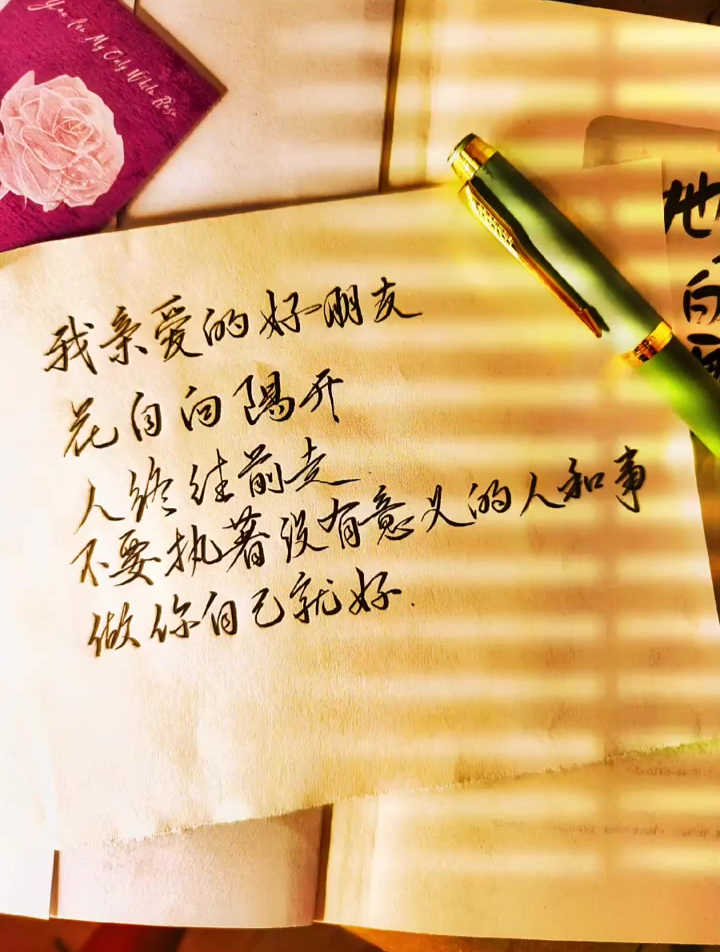 You Are My Only White Rose
我亲爱的好朋友
花自向陽开
人终往前走
不要执著没有意义的人和事
做你自己就好.
她
白